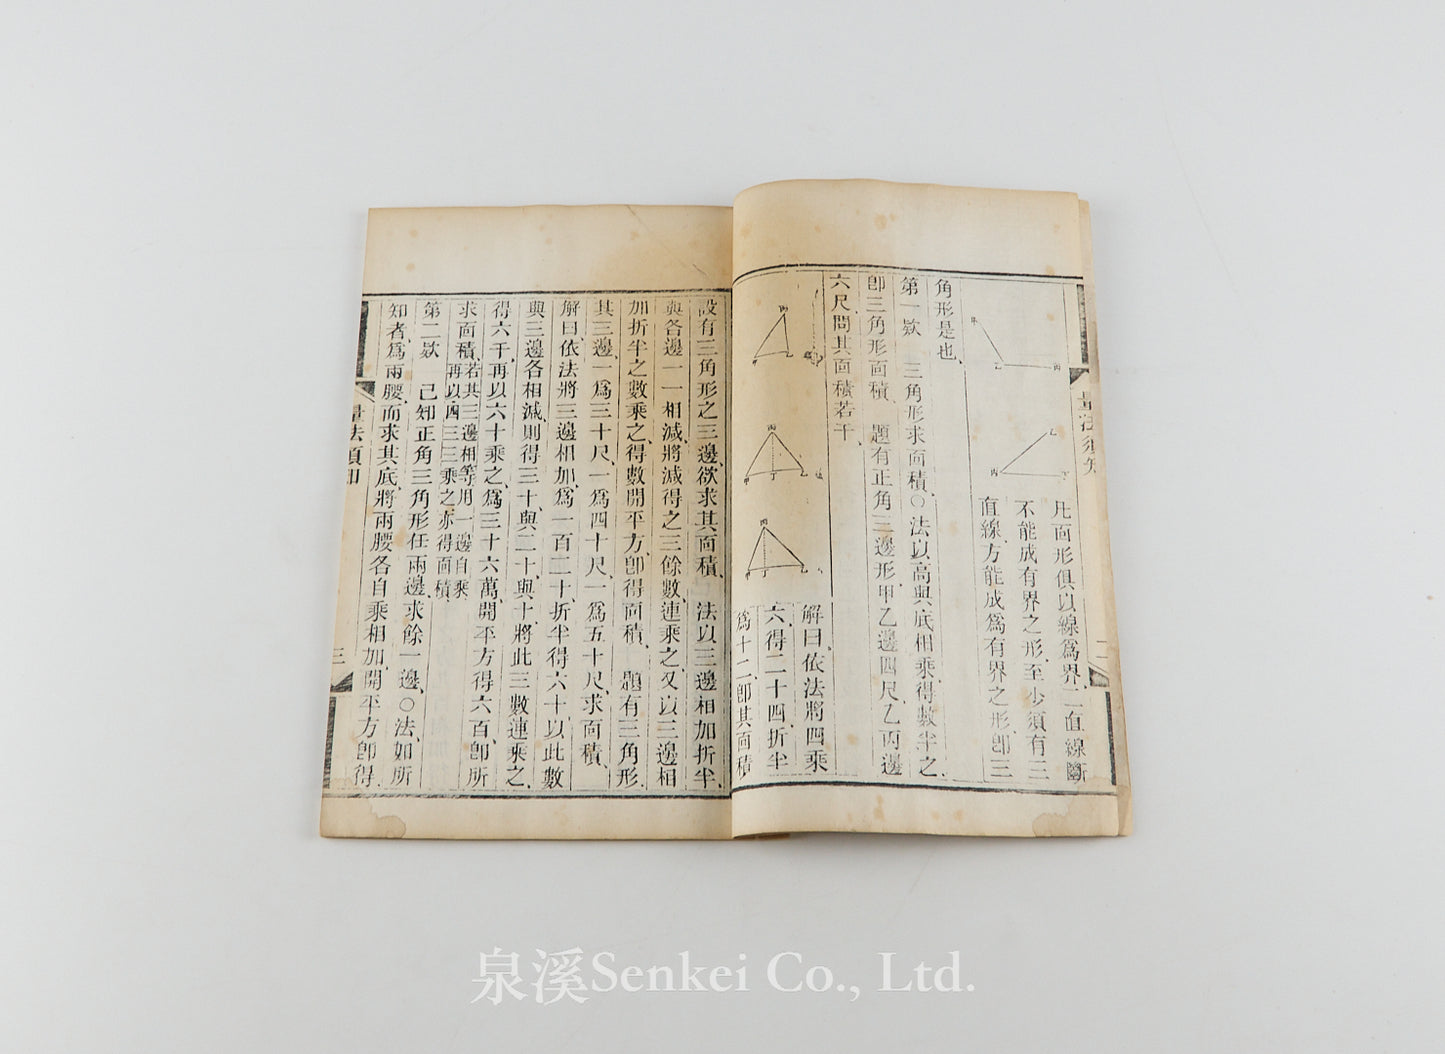 量法須知
凡面形俱以線為界、二直線斷
不能成有界之形、至少須有三
直線、方能成為有界之形、卽三
角形是也、
第一欵 三角形求面積、○法以高與底相乘、得數半之、
卽三角形面積、 題有正角三邊形、甲乙邊四尺、乙丙邊
六尺、問其面積若干、
解曰、依法將四乘
六、得二十四、折半
為十二、卽其面積
設有三角形之三邊、欲求其面積、 法以三邊相加折半、
與各邊一一相減、將減得之三餘數、連乘之、又以三邊相
加折半之數乘之、得數開平方、卽得面積、 題有三角形
其三邊、一爲三十尺、一爲四十尺、一爲五十尺、求面積、
解曰、依法將三邊相加、爲一百二十、折半得六十、以此數
與三邊各相減、則得三十、與二十、與十、將此三數連乘之、
得六千、再以六十乘之、爲三十六萬、開平方得六百、卽所
求面積、若其三邊相等、用一邊自乘
再以四三三乘之、亦得面積、
第二欵 已知正角三角形任兩邊、求餘一邊、○法、如所
知者、爲兩腰、而求其底、將兩腰各自乘相加、開平方卽得、
量法須知
三
泉溪Senkei Co., Ltd.